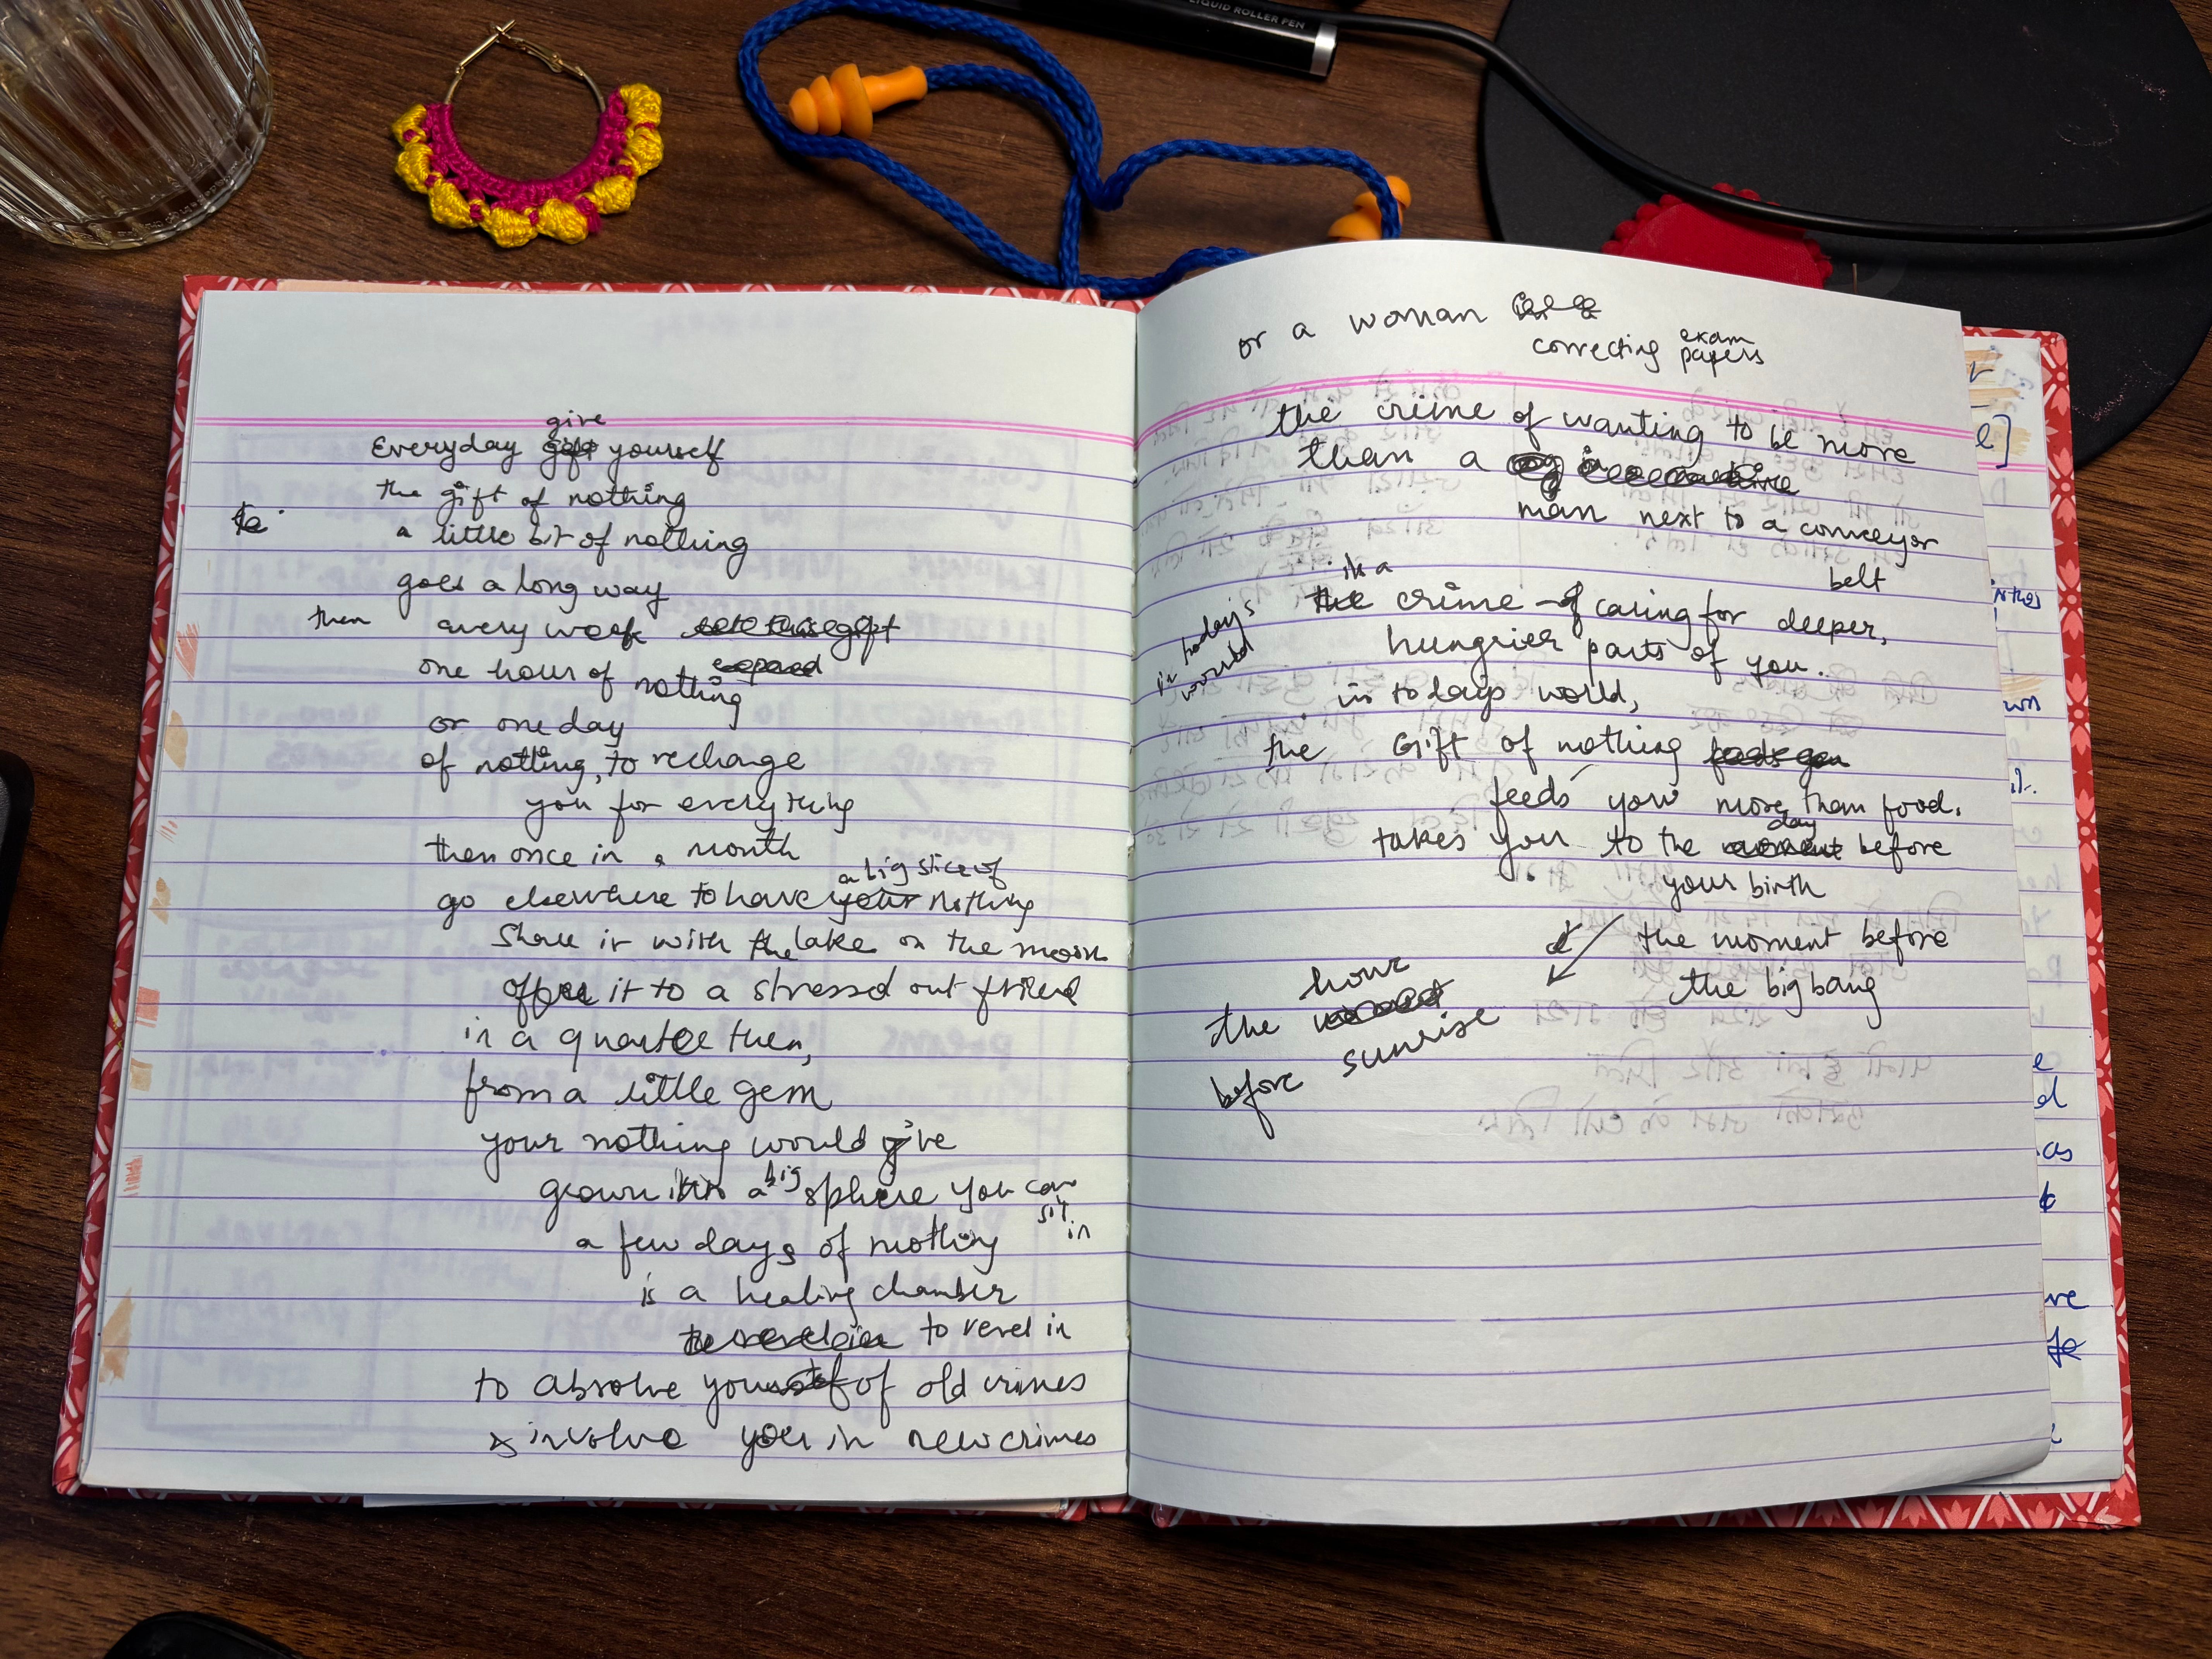 LIQUID ROLLER PEN
give
Everyday yourself
the gift of nothing
a little bit of nothing
goes a long way
then every week
one hour of nothing
or one day
of nothing, to recharge
you for everything
then once in a month
a big slice of
go elsewhere to have your nothing
share it with the lake or the moon
offer it to a stressed out friend
in a quarter then,
from a little gem
your nothing would've
grown into a big sphere you can
sit
in
a few days of nothing
is a healing chamber
to revel in
to absolve yourself of old crimes
& involve you in new crimes
or a woman
correcting exam
papers
the crime of wanting to be more
than a
man next to a conveyor
belt
in today's
world
is a
the crime of caring for deeper,
hungrier parts of you.
in todays world,
the Gift of nothing
feeds you more than food.
day
takes you to the moment before
your birth
the moment before
the big bang
the hour
before sunrise